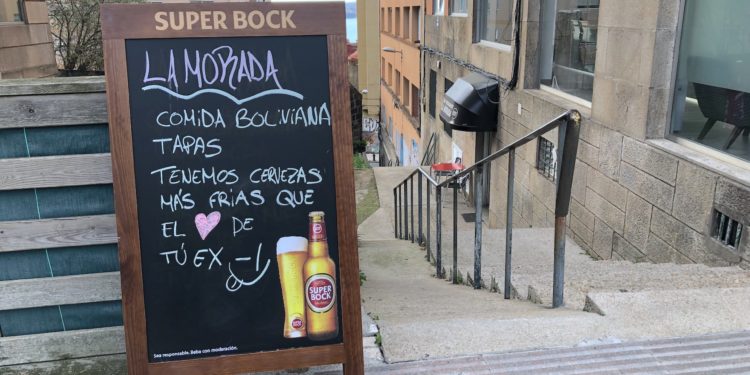 SUPER BOCK
LA MORADA
COMIDA BOLIVIANA
TAPAS
TENEMOS CERVEZAS
MÁS FRÍAS QUE
EL ♥ DE
TÚ EX
SUPER
BOCK
Sea responsable. Beba con moderación.